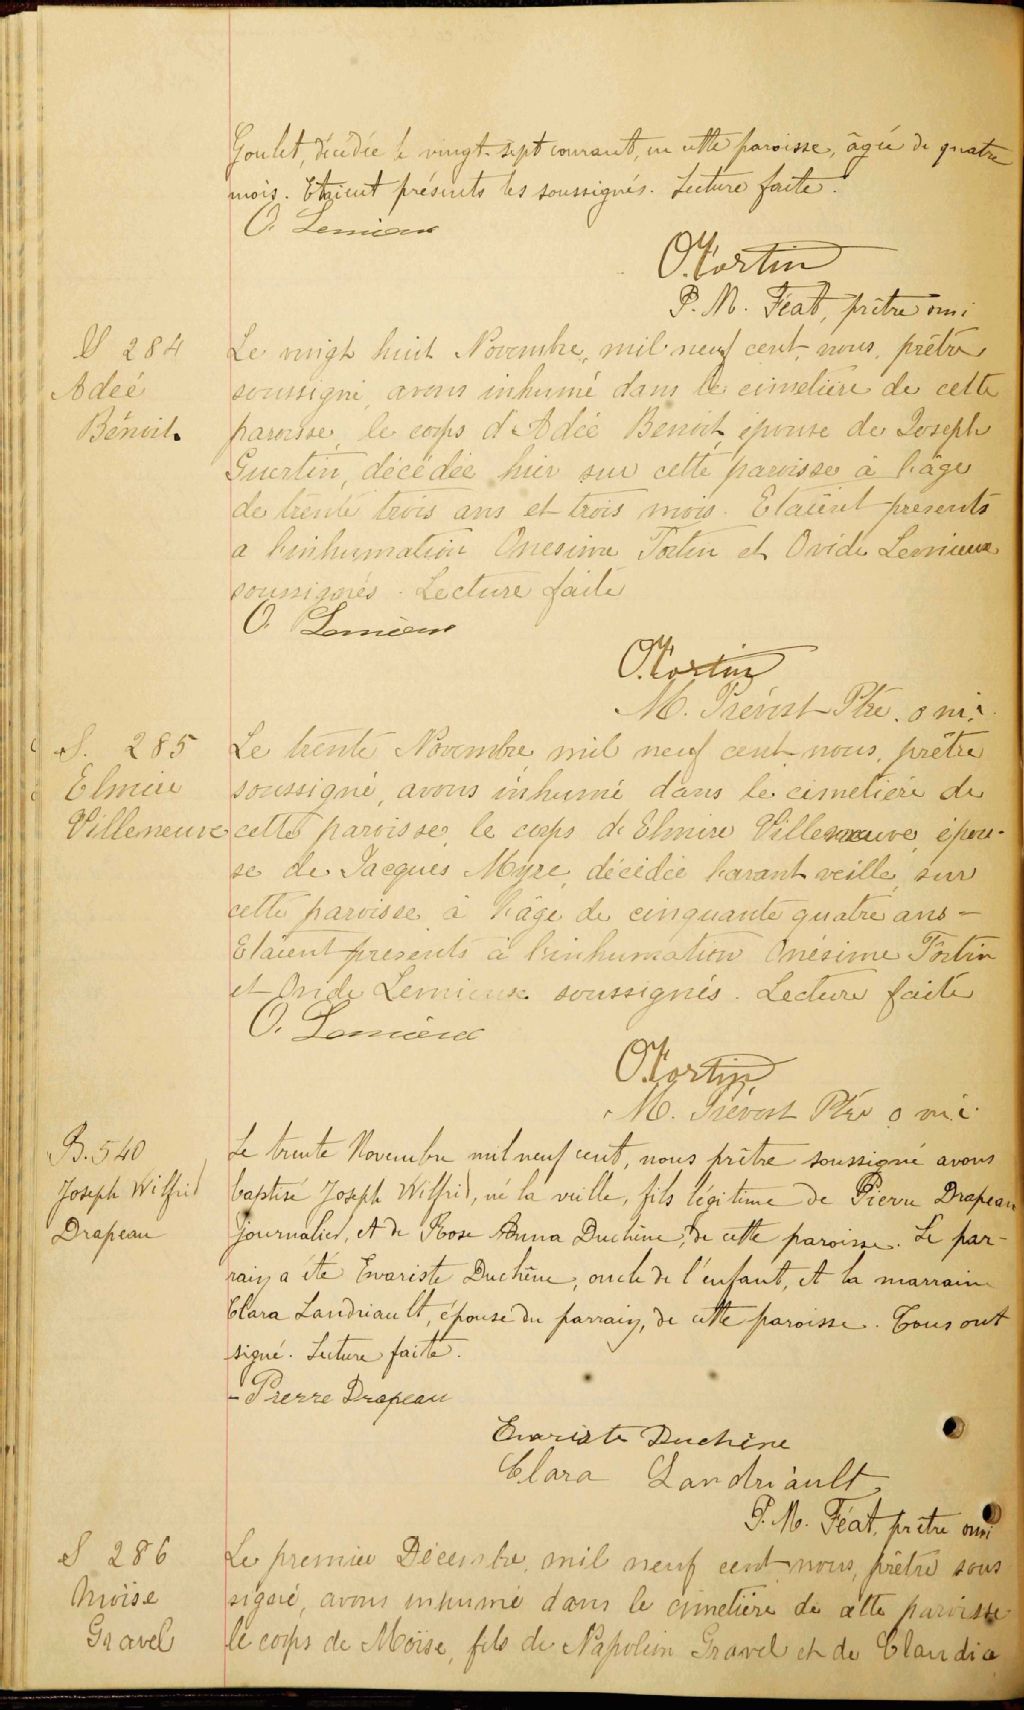 Goulet, décédée le vingt-sept courant, en cette paroisse, âgée de quatre
mois. Etaient présents les soussignés. Lecture faite.
O. Lemieux
O. Fortin
P. M. Féat, prêtre omi
S 284
Adeé
Bénoit.
Le vingt huit Novembre, mil neuf cent, nous, prêtre
soussigné, avons inhumé dans le cimetière de cette
paroisse, le corps d'Adée Benoit, épouse de Joseph
Guertin, décédée hier sur cette paroisse à l'âge
de trente trois ans et trois mois. Etaient presents
a l'inhumation Onesime Fortin et Ovide Lemieux
soussignés. Lecture faite
O. Lemieux
O. Fortin
M. Prévost Ptre. o m i.
S. 285
Elmire
Villeneuve
Le trente Novembre mil neuf cent, nous, prêtre
soussigné, avons inhumé dans le cimetière de
cette paroisse, le corps de Elmire Villeneuve, épou-
se de Jacques Myre, décédée l'avant veille, sur
cette paroisse à l'âge de cinquante quatre ans -
Etaient presents à l'inhumation Onésime Fortin
et Ovide Lemieux soussignés. Lecture faite
O. Lemieux
O. Fortin
M. Prévost Ptre o m i
B. 540
Joseph Wilfrid
Drapeau
Le trente Novembre mil neuf cent, nous prêtre soussigné avons
baptisé Joseph Wilfrid, né la veille, fils légitime de Pierre Drapeau
journalier, et de Rose Anna Duchêne, de cette paroisse. Le par-
rain a été Evariste Duchêne, oncle de l'enfant, et la marraine
Clara Landriault, épouse du parrain, de cette paroisse. Tous ont
signé. Lecture faite.
- Pierre Drapeau
Evariste Duchêne
Clara Landriault
P. M. Féat, prêtre omi
S 286
Moïse
Gravel
Le premier Décembre, mil neuf cent nous, prêtre sous
signé, avons inhumé dans le cimetière de cette paroisse
le corps de Moïse, fils de Napoléon Gravel et de Claudia